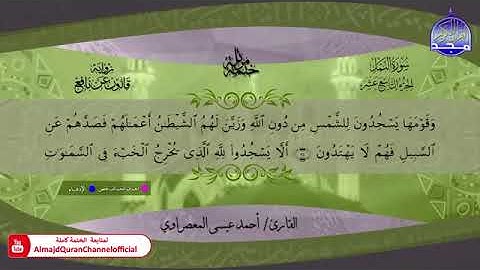 سورة النمل
الجزء التاسع عشر
برواية
قالون عن نافع
وَقَوْمَهَا يَسْجُدُونَ لِلشَّمْسِ مِن دُونِ اللَّهِ وَزَيَّنَ لَهُمُ الشَّيْطَٰنُ أَعْمَٰلَهُمْ فَصَدَّهُمْ عَنِ
السَّبِيلِ فَهُمْ لَا يَهْتَدُونَ أَلَّا يَسْجُدُوا۟ لِلَّهِ الَّذِى يُخْرِجُ الْخَبْءَ فِى السَّمَٰوَٰتِ
الإدغام
القارئ/ أحمد عيسى المعصراوي
لمتابعة الختمة كاملة
AlmajdQuranChannelofficial
You
Tube